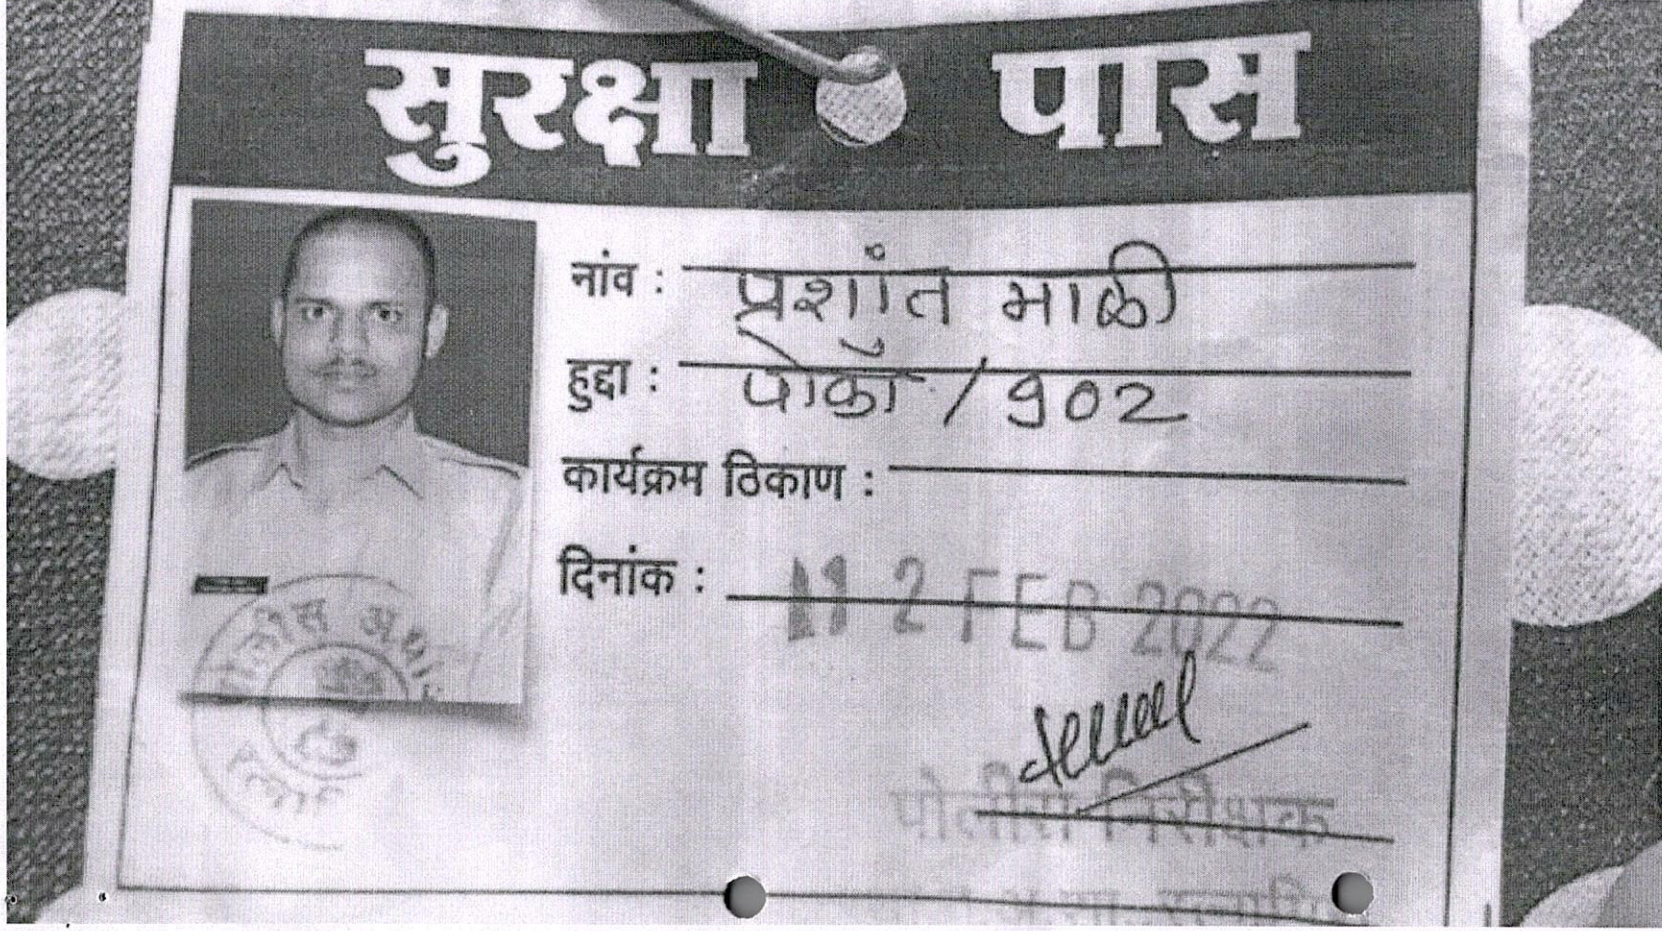 सुरक्षा पास
नांव : प्रशांत माळी
हुद्दा : पोकाॅ / 902
कार्यक्रम ठिकाण :
दिनांक : 12 FEB 2022
पोलीस निरीक्षक
पोलीस अधी